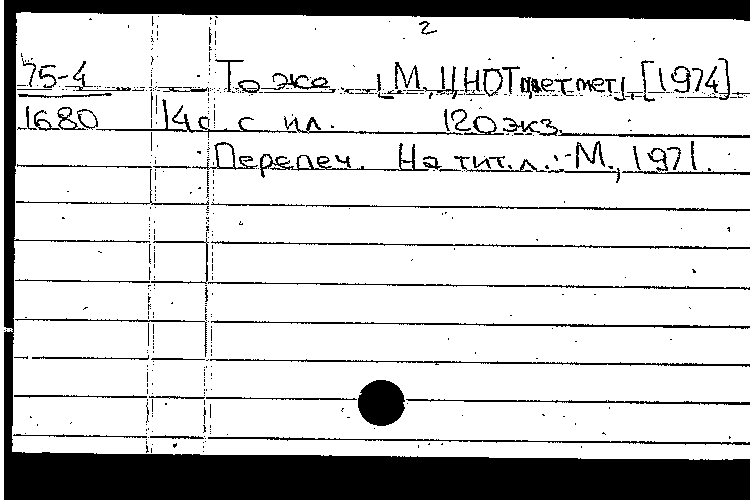 2
75-4 То же. [М, ЦНОТцветмет], [1974]
1680 14с. с ил. 120 экз.
Перепеч. На тит.л.: М., 1971.